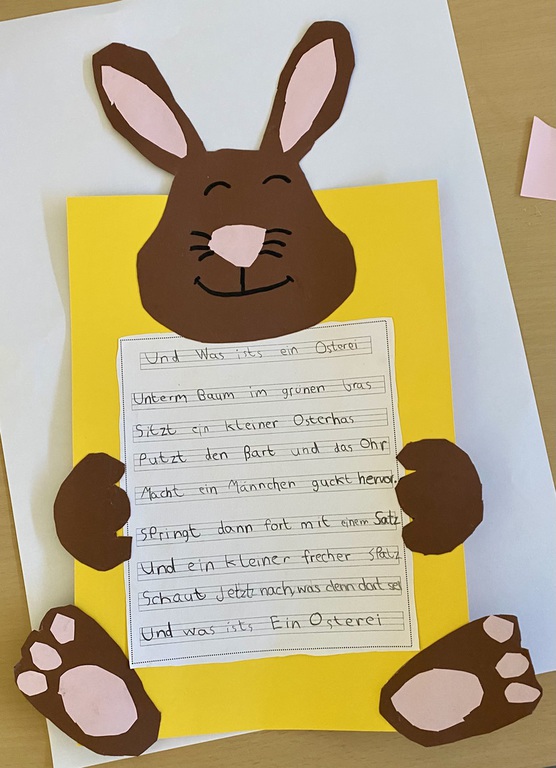 Und Was ists ein Osterei
Unterm Baum im grünen Gras
Sitzt ein kleiner Osterhas
Putzt den Bart und das Ohr
Macht ein Männchen guckt hervor.
springt dann fort mit einem Satz
Und ein kleiner frecher Spatz
Schaut Jetzt nach, was denn dort sei
Und was ists Ein Osterei